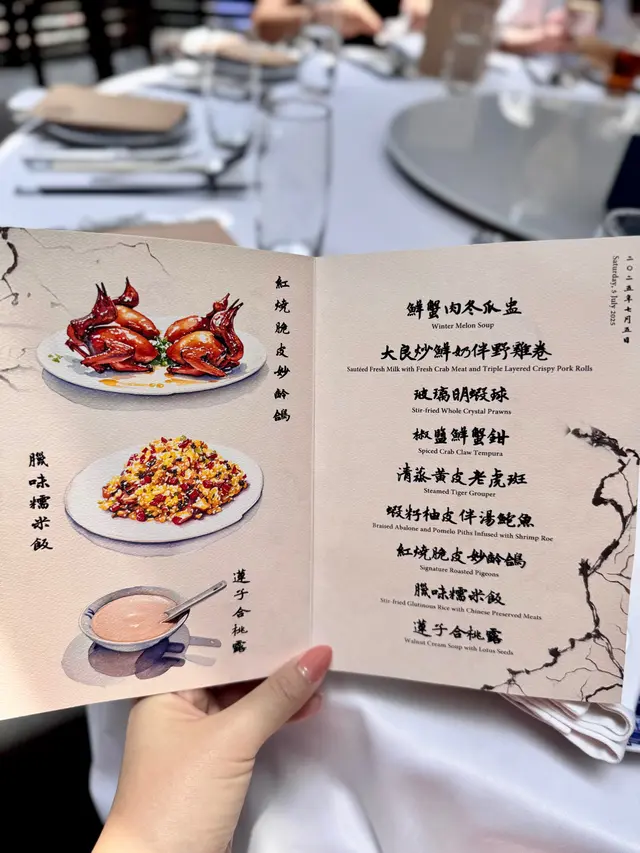 紅燒脆皮妙齡鴿
臘味糯米飯
蓮子合桃露
二〇二五年七月五日
Saturday, 5 July 2025
鮮蟹肉冬瓜盅
Winter Melon Soup
大良炒鮮奶伴野雞卷
Sautéed Fresh Milk with Fresh Crab Meat and Triple Layered Crispy Pork Rolls
玻璃明蝦球
Stir-fried Whole Crystal Prawns
椒鹽鮮蟹鉗
Spiced Crab Claw Tempura
清蒸黃皮老虎斑
Steamed Tiger Grouper
蝦籽柚皮伴湯鮑魚
Braised Abalone and Pomelo Piths Infused with Shrimp Roe
紅燒脆皮妙齡鴿
Signature Roasted Pigeons
臘味糯米飯
Stir-fried Glutinous Rice with Chinese Preserved Meats
蓮子合桃露
Walnut Cream Soup with Lotus Seeds